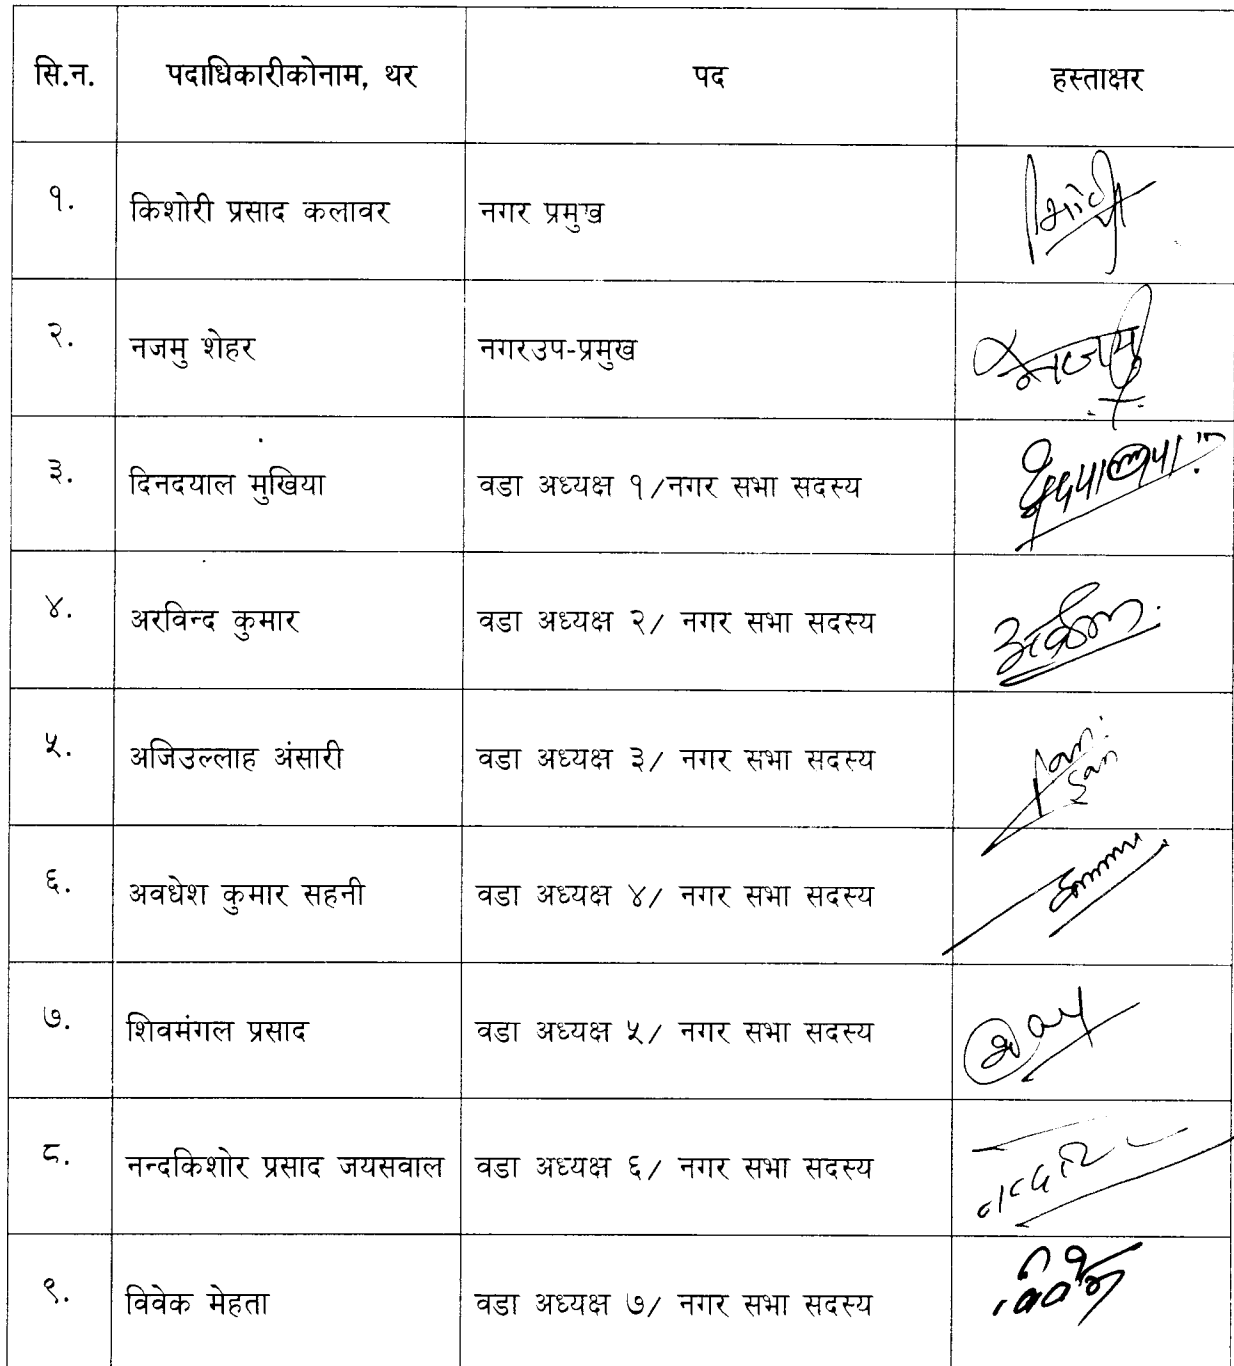 सि.न. पदाधिकारीकोनाम, थर पद हस्ताक्षर
१. किशोरी प्रसाद कलावर नगर प्रमुख
२. नजमु शेहर नगरउप-प्रमुख नजमु
३. दिनदयाल मुखिया वडा अध्यक्ष १/नगर सभा सदस्य
४. अरविन्द कुमार वडा अध्यक्ष २/ नगर सभा सदस्य
५. अजिउल्लाह अंसारी वडा अध्यक्ष ३/ नगर सभा सदस्य
६. अवधेश कुमार सहनी वडा अध्यक्ष ४/ नगर सभा सदस्य
७. शिवमंगल प्रसाद वडा अध्यक्ष ५/ नगर सभा सदस्य
८. नन्दकिशोर प्रसाद जयसवाल वडा अध्यक्ष ६/ नगर सभा सदस्य
९. विवेक मेहता वडा अध्यक्ष ७/ नगर सभा सदस्य